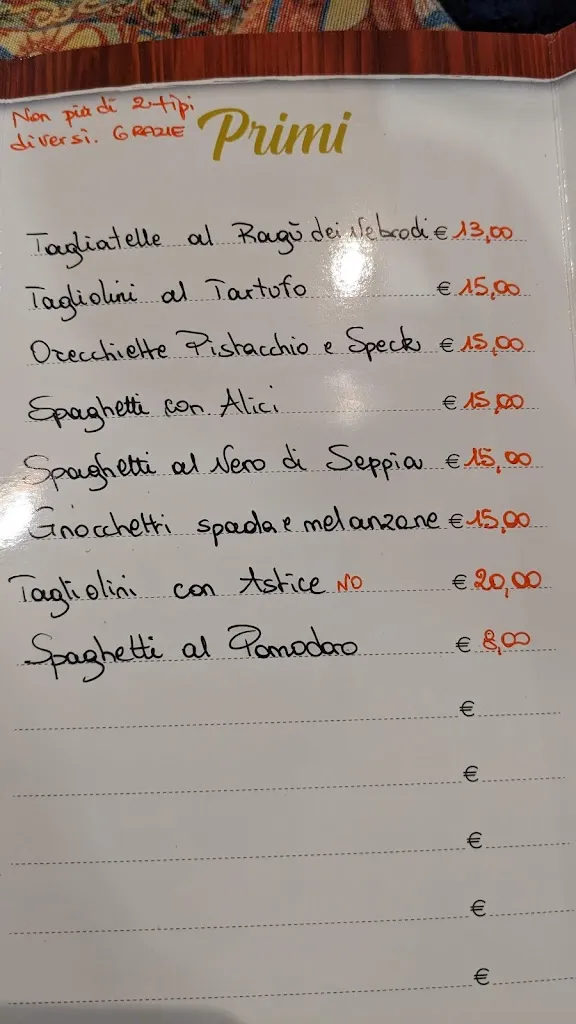 Non più di 2 tipi
diversi. GRAZIE
Primi
Tagliatelle al Ragù dei Nebrodi € 13,00
Tagliolini al Tartufo € 15,00
Orecchiette Pistacchio e Speck € 15,00
Spaghetti con Alici € 15,00
Spaghetti al Nero di Seppia € 15,00
Gnocchetti spada e melanzane € 15,00
Tagliolini con Astice NO € 20,00
Spaghetti al Pomodoro € 8,00
€
€
€
€
€